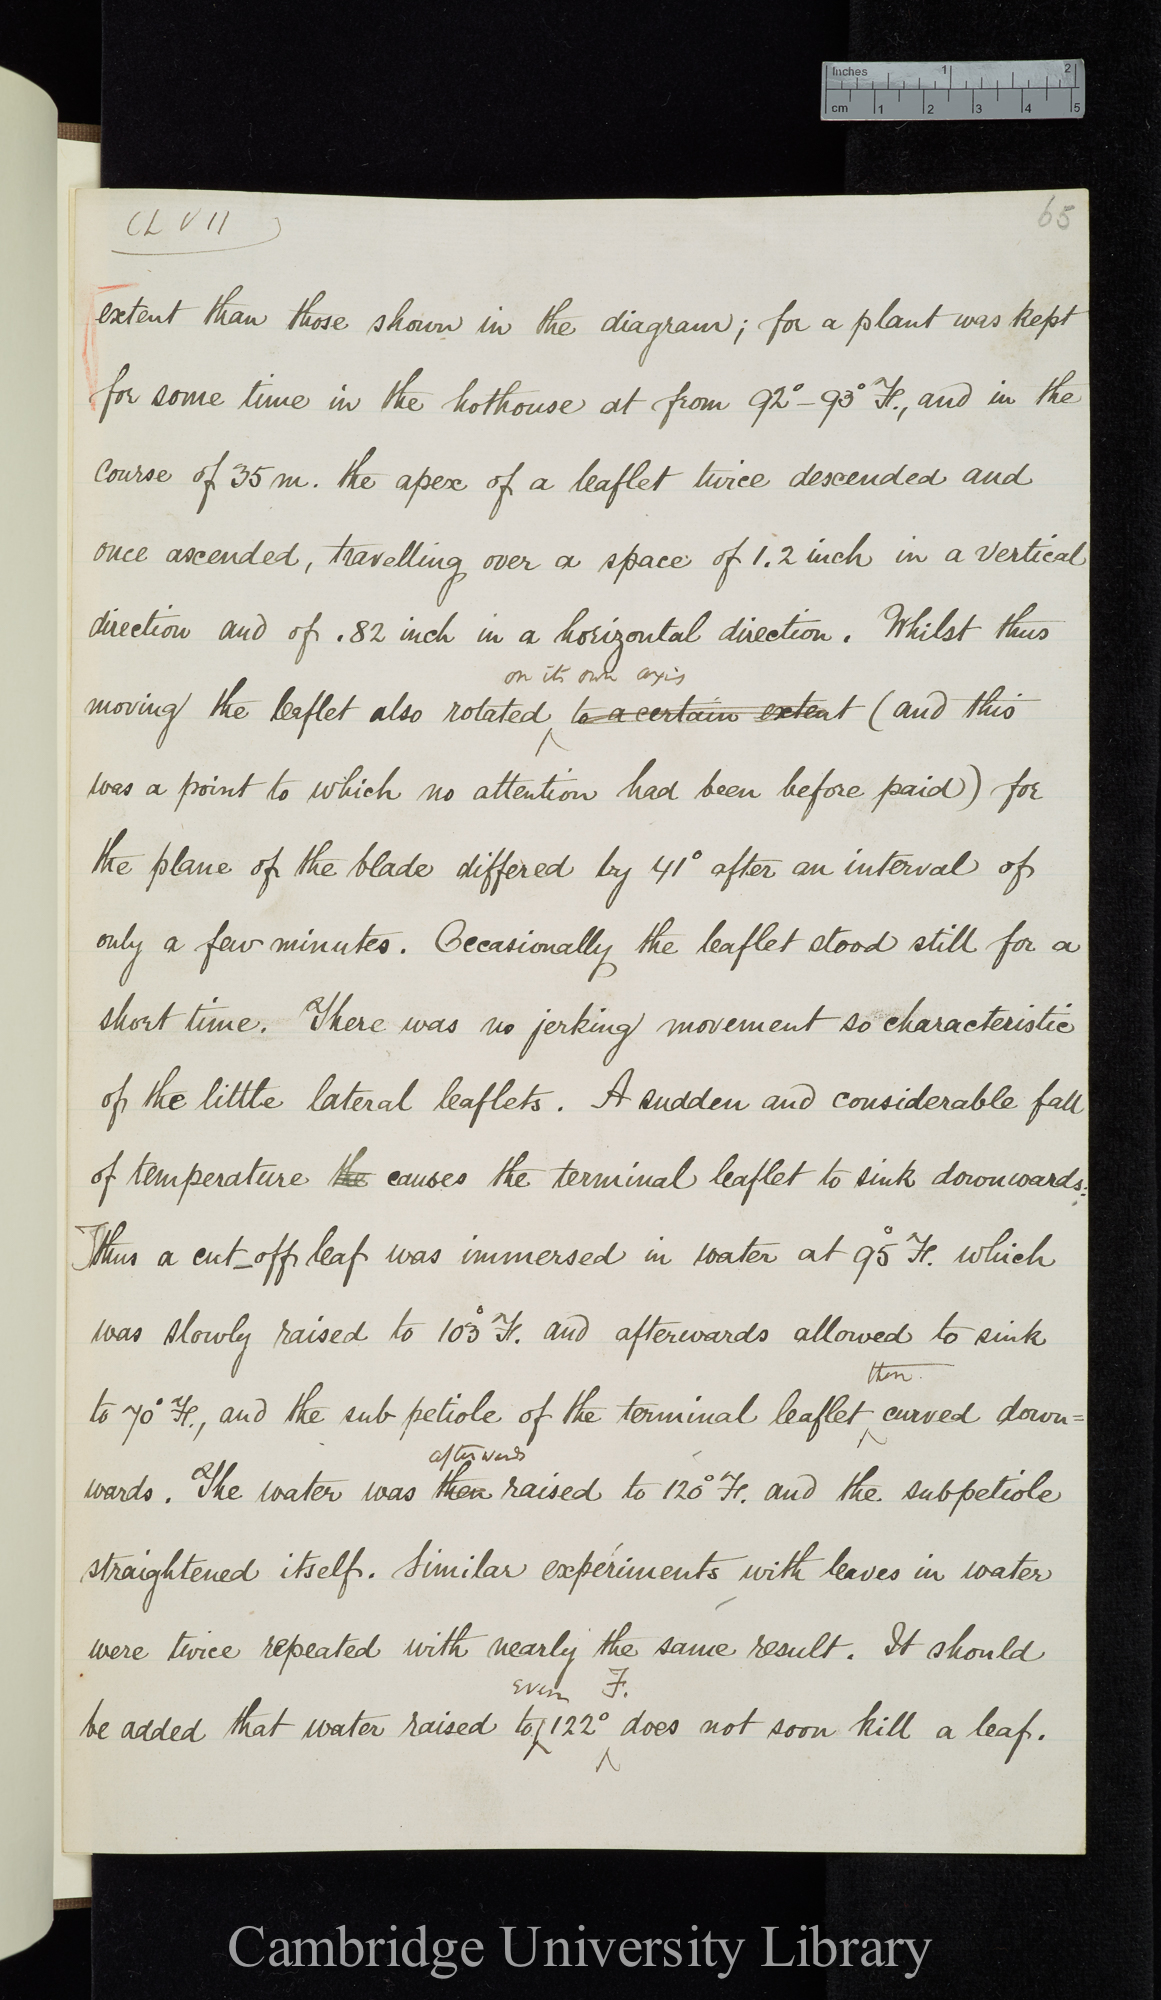 Inches 1 2
cm 1 2 3 4 5
(LVII)
65
extent than those shown in the diagram; for a plant was kept
for some time in the hothouse at from 92°–93° F., and in the
course of 35 m. the apex of a leaflet twice descended and
once ascended, travelling over a space of 1.2 inch in a vertical
direction and of .82 inch in a horizontal direction. Whilst thus
on its own axis
moving the leaflet also rotated to a certain extent (and this
was a point to which no attention had been before paid) for
the plane of the blade differed by 41° after an interval of
only a few minutes. Occasionally the leaflet stood still for a
short time. There was no jerking movement so characteristic
of the little lateral leaflets. A sudden and considerable fall
of temperature the causes the terminal leaflet to sink downwards:
Thus a cut-off leaf was immersed in water at 95° F. which
was slowly raised to 103° F. and afterwards allowed to sink
then
to 70° F., and the sub petiole of the terminal leaflet curved down=
afterwards
wards. The water was then raised to 120° F. and the subpetiole
straightened itself. Similar experiments with leaves in water
were twice repeated with nearly the same result. It should
even F.
be added that water raised to 122° does not soon kill a leaf.
Cambridge University Library